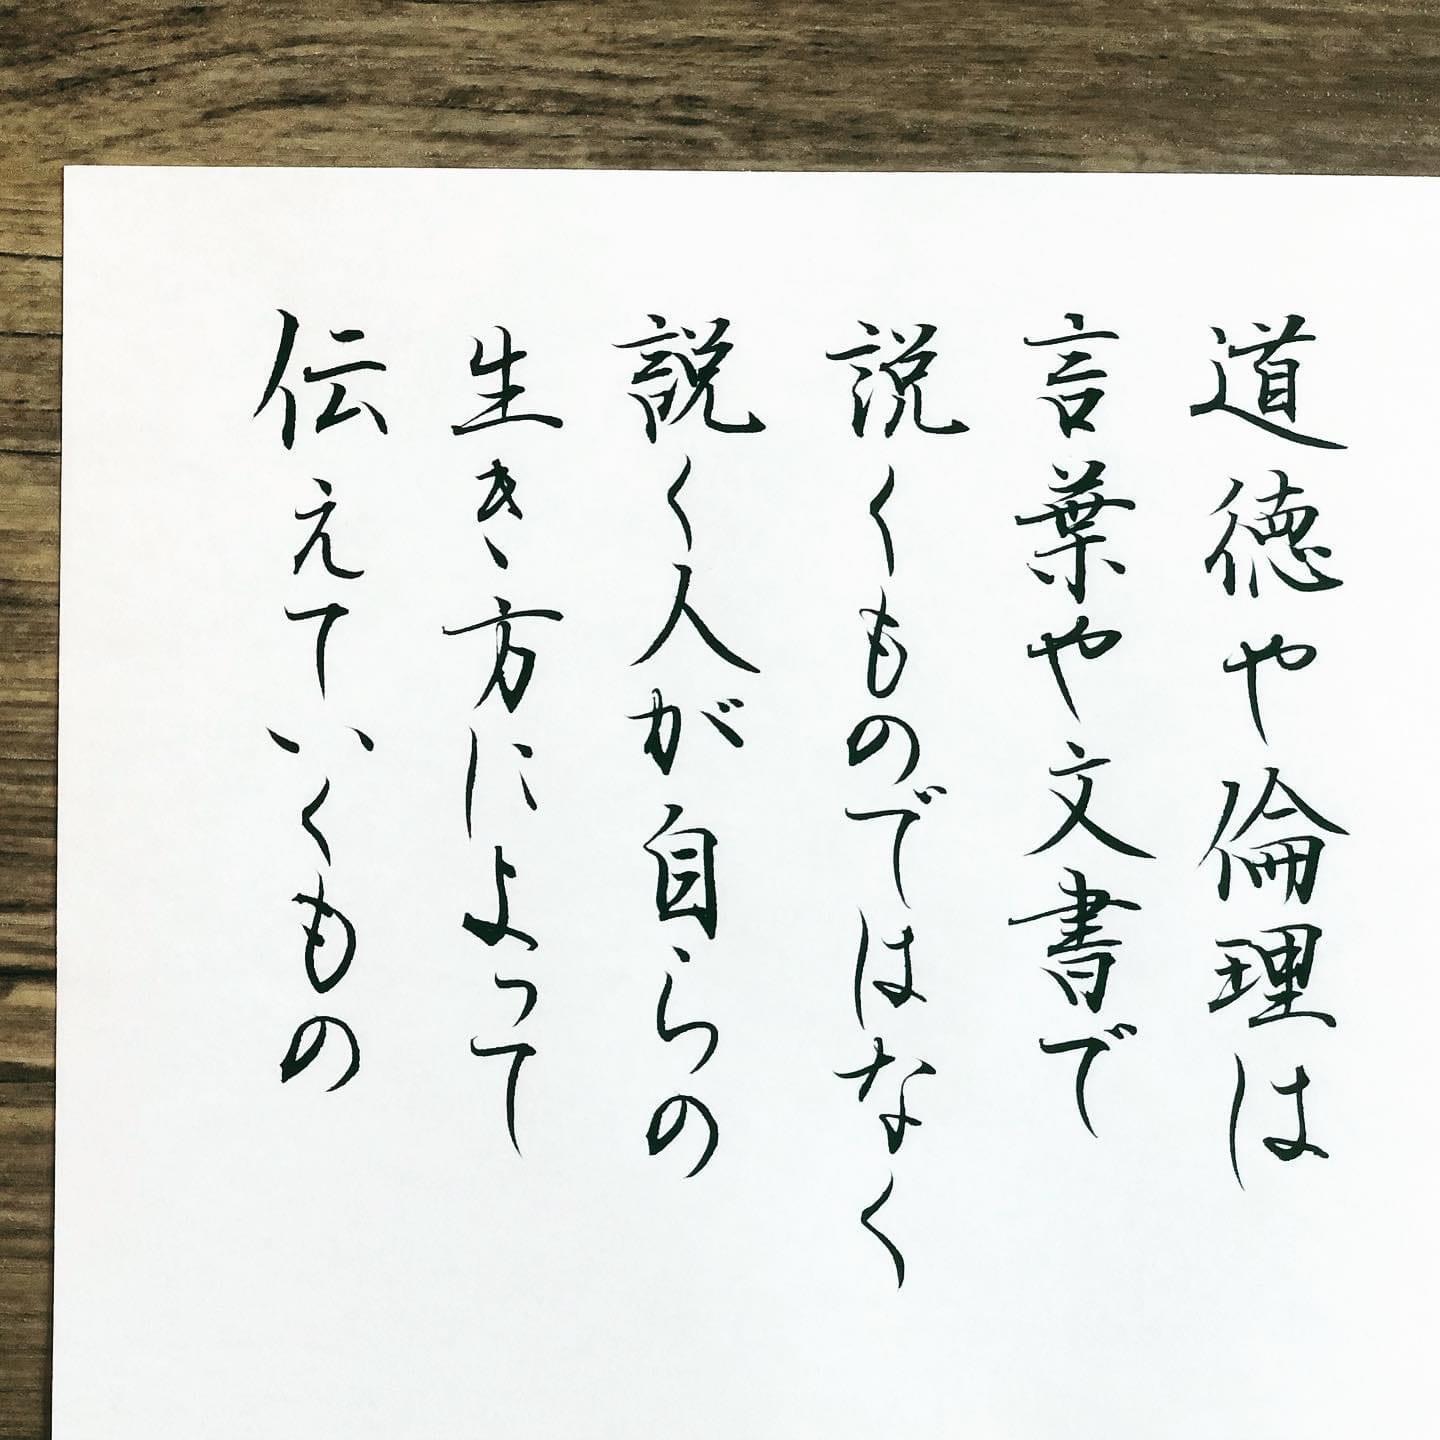 道徳や倫理は
言葉や文書で
説くものではなく
説く人が自らの
生き方によって
伝えていくもの